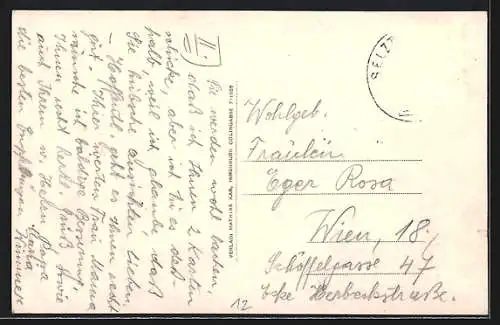 II.)
Sie werden wohl lachen,
daß ich Ihnen 2 Karten
schicke, aber ich tu es des-
halb, weil ich glaube, daß
Sie hübsche Ansichten lieben.
– Hoffentl. geht es Ihnen recht
gut. Ihrer werten Frau Mama
wünsche ich baldige Besserung.
Ihnen recht herzl. Gruß, sowie
auch Ihrem w. Herrn
die besten Empfehlungen
VERLAG MATHIAS KAR, INNSBRUCK, COLINGASSE 7
SELZT
Wohlgeb.
Fräulein
Eger Rosa
Wien, 18,
Schöffelgasse 47
Ecke Herbeckstraße.
12